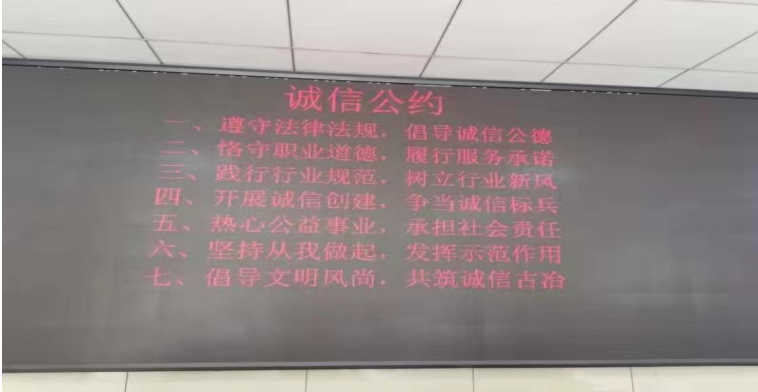 诚信公约
一、遵守法律法规，倡导诚信公德
二、恪守职业道德，履行服务承诺
三、践行行业规范，树立行业新风
四、开展诚信创建，争当诚信标兵
五、热心公益事业，承担社会责任
六、坚持从我做起，发挥示范作用
七、倡导文明风尚，共筑诚信古冶